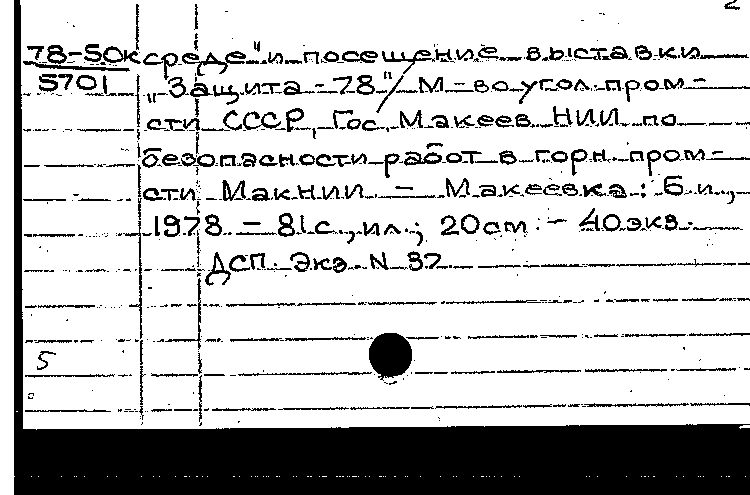 2
78-50к среде" и посещение выставки
5701 „Защита - 78" / М-во угол. пром-
сти СССР, Гос. Макеев. НИИ по
безопасности работ в горн. пром-
сти МакНИИ. - Макеевка: Б.и.,
1978. - 81с., ил.; 20см. - 40экз.
ДСП. Экз. N 37
5